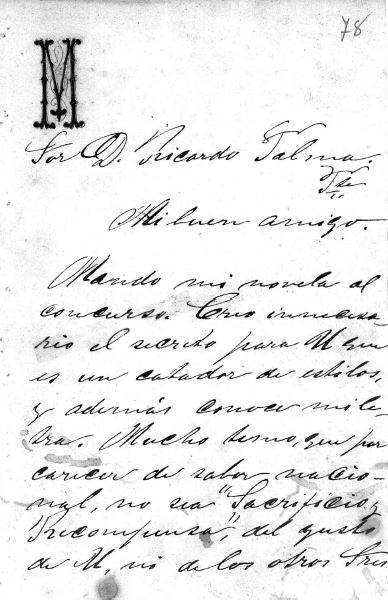 78
M
Sor D. Ricardo Palma.
Pte
Mi buen amigo.
Mando mi novela al
concurso. Creo innecesa
rio el secreto para U que
es un catador de estilos,
y además conoce mi le
tra. Mucho temo, que por
carecer de sabor nacio-
nal, no sea "Sacrificio y
Recompensa", del gusto
de U, ni de los otros Sres